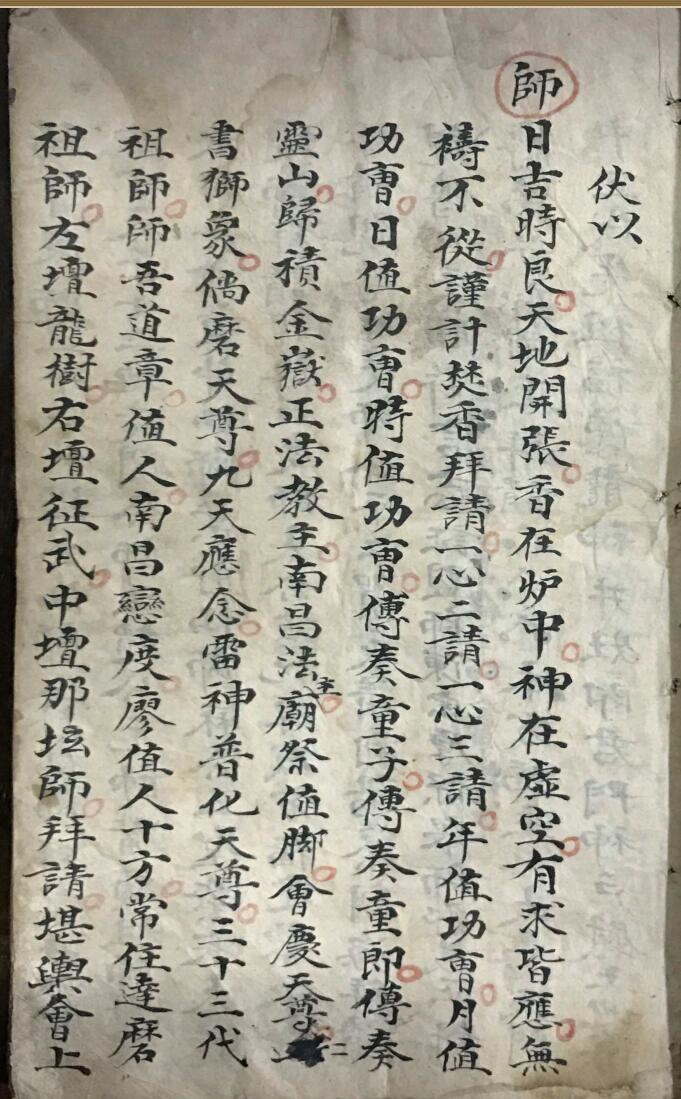 伏以
師日吉時良天地開張香在炉中神在虛空有求皆應無
禱不從謹計焚香拜請一心二請一心三請年值功曹月值
功曹日值功曹時值功曹傳奏童子傳奏童郎傳奏
靈山歸積金嶽正法教主南昌法主廟祭值脚會慶天尊
書獅象倘磨天尊九天應念雷神普化天尊三十三代
祖師師吾道章值人南昌戀度廖值人十方常住達磨
祖師左壇龍樹右壇征武中壇那坛師拜請堪輿會上